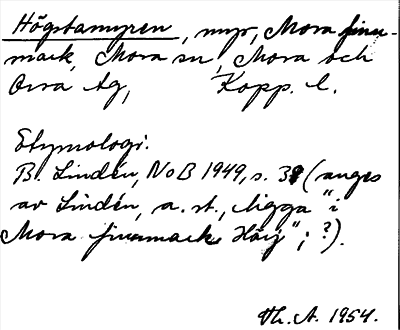 Högstamyren, myr, Mora finn-
mark, Mora sn, Mora och
Orsa tg, Kopp. l.
Etymologi:
B. Lindén, NoB 1949, s. 38 (anges
av Lindén, a. st., ligga "i
Mora finnmark
Th. A. 1954.